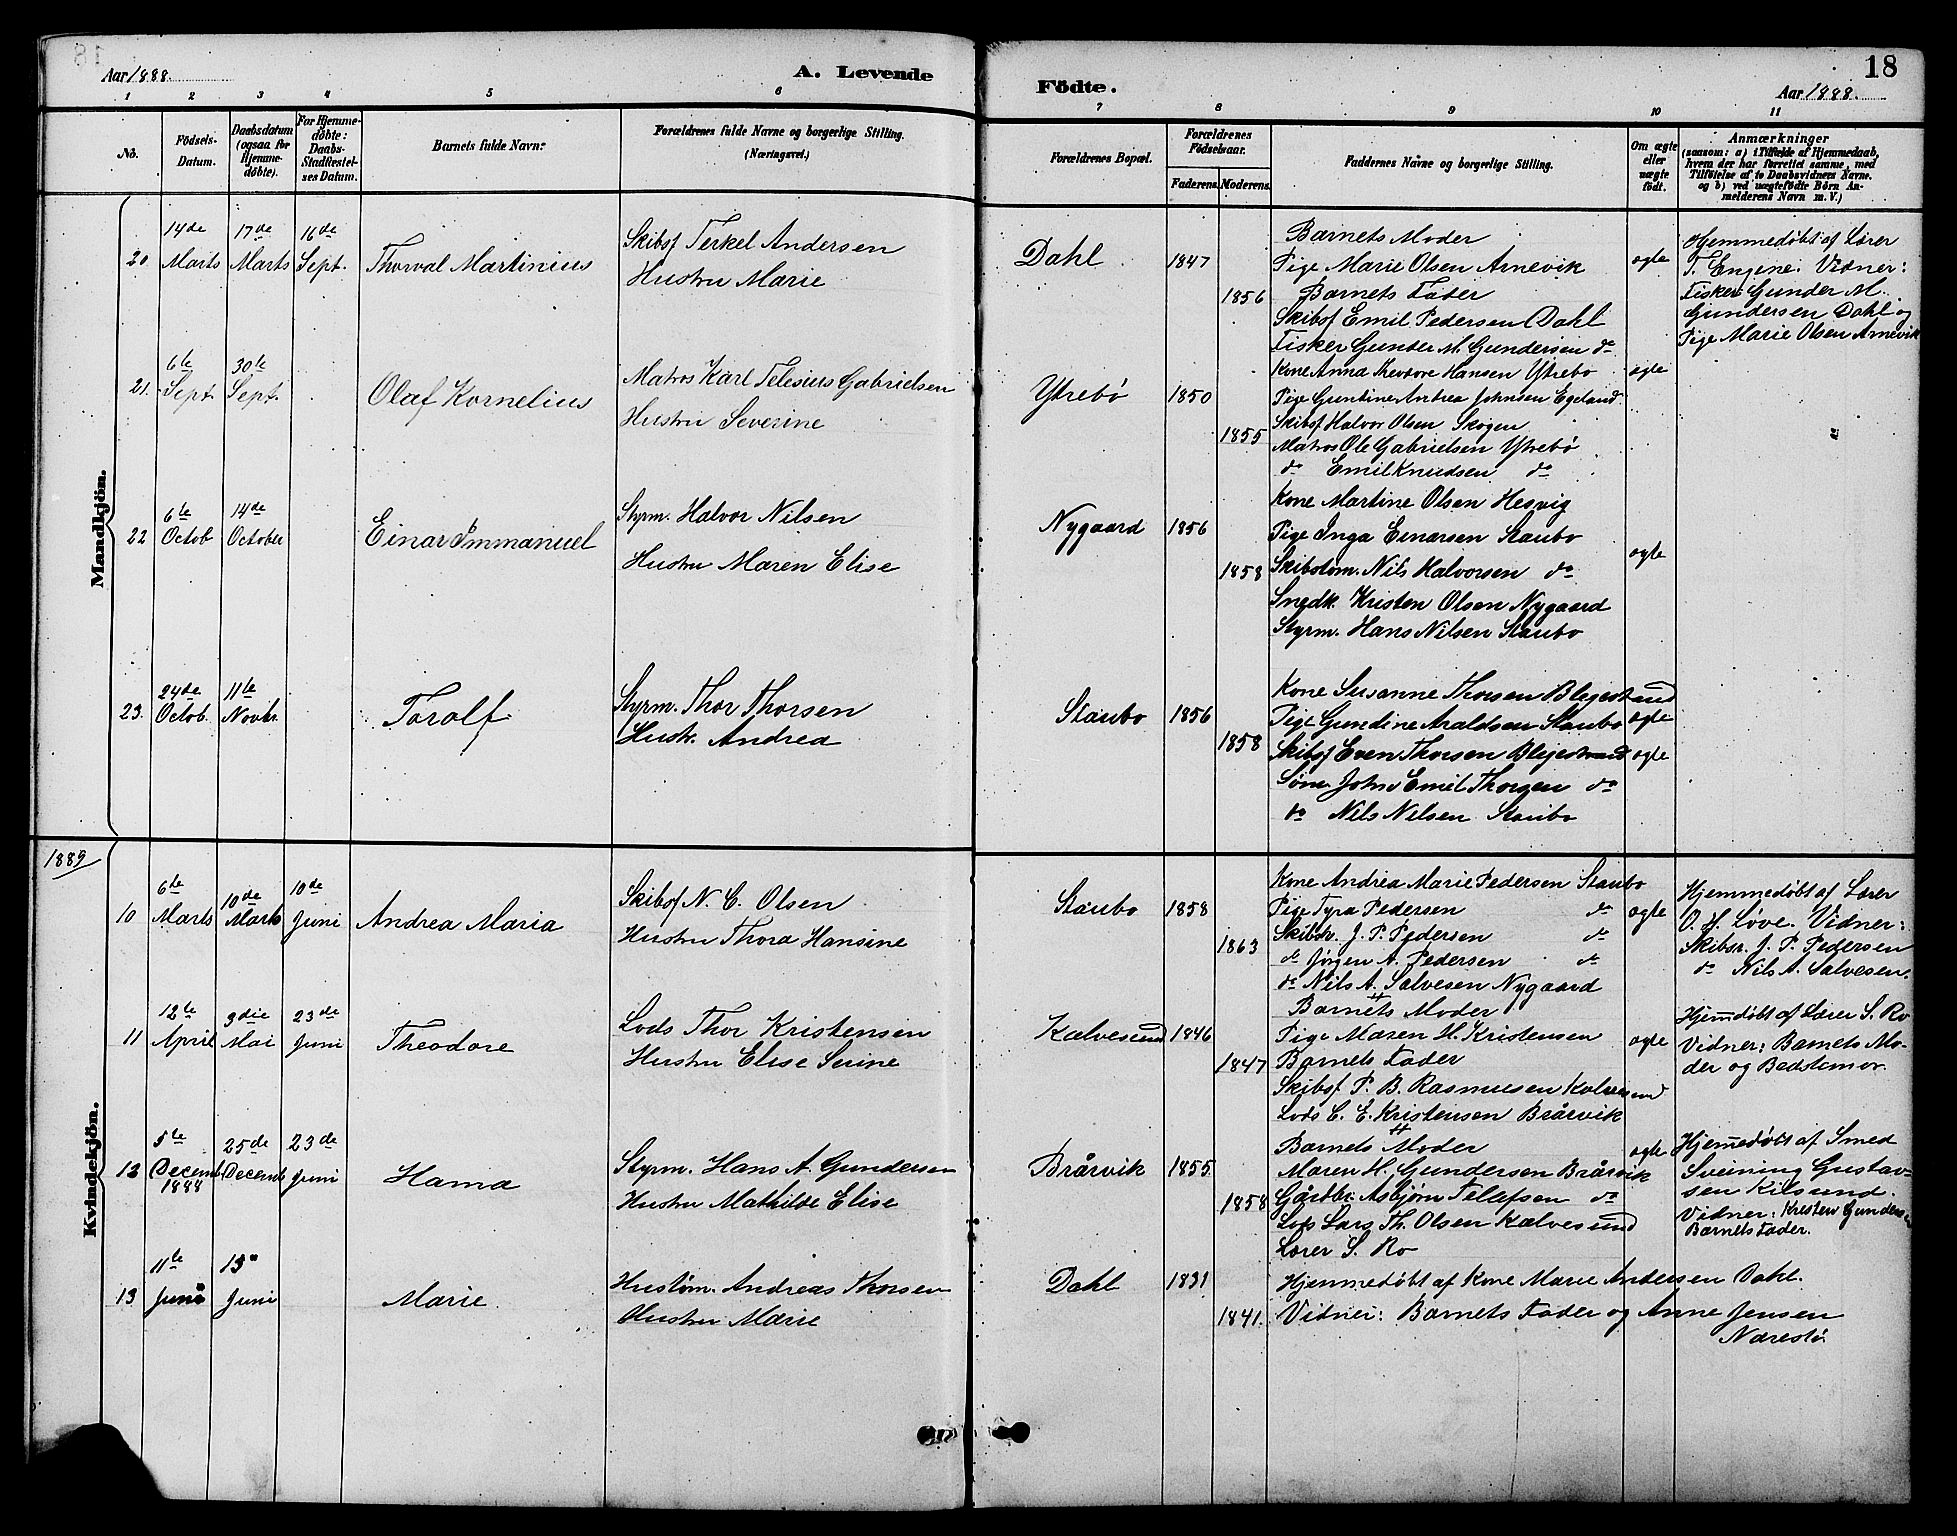 Aar 1888.
A. Levende
Födte.
18
Aar 1888.
1 2 3 4 5 6 7 8 9 10 11
No.
Födsels-Datum.
Daabsdatum (ogsaa for Hjemmedöbte).
For Hjemmedöbte: Daabs-Stadfæstelses Datum.
Barnets fulde Navn.
Forældrenes fulde Navne og borgerlige Stilling. (Næringsvei.)
Forældrenes Bopæl.
Forældrenes Födselsaar.
Faderens. Moderens.
Faddernes Navne og borgerlige Stilling.
Om ægte eller uægte födt.
Anmærkninger
(saasom: a) i Tilfælde af Hjemmedaab, hvem der har forrettet samme, med Tilföielse af to Daabsvidners Navne. og b) ved uægtefödte Börn Anmelderens Navn m. V.)
Mandkjön.
20. 14de Marts 17de Marts 16de Sept. Thorval Martinius
Skibsf Terkel Andersen
Hustru Marie
Dahl 1847 1856
Barnets Moder
Pige Marie Olsen Arnevik
Barnets Fader
Skibsf Emil Pedersen Dahl
Fisker Gunder M. Gundersen do
ægte
Hjemmedøbt af Lærer
T. Engene. Vidner:
Fisker Gunder M.
Gundersen Dahl og
Pige Marie Olsen Arnevik
21. 6te Sept. 30te Sept. Olaf Kornelius
Matros Karl Telesius Gabrielsen
Hustru Severine
Ytrebø 1850 1855
Kone Anna Theodore Hansen Ytrebø
Pige Gundine Andrea Johnsen Egeland
Skibsf Halvor Olsen Skogen
Matros Ole Gabrielsen Ytrebø
do Emil Knudsen do
ægte
22 6te Octob 14de October Einar Immanuel
Styrm. Halvor Nilsen
Hustru Maren Elise
Nygaard 1856 1858
Kone Martine Olsen Hesvig
Pige Inga Einarsen Staubo
Skibstøm. Nils Halvorsen do
Snedk. Kristen Olsen Nygaard
Styrm. Hans Nilsen Staubo
ægte
23. 24de Octob. 11te Novbr. Toralf
Styrm. Thor Thorsen
Hustr. Andrea
Staubo 1856 1858
Kone Susanne Thorsen Blegestrand
Pige Gundine Araldsen Staubo
Skibsf Even Thorsen Blegestrand
Sømr. John Emil Thorsen do
do Nils Nilsen Staubo
ægte
ægte
1889
Kvindekjön.
10 6te Marts 10de Marts 10de Juni Andrea Maria
Skibsf N. C. Olsen
Hustru Thora Hansine
Staubo 1858 1863
Kone Andrea Marie Pedersen Staubo
Pige Tyra Pedersen do
Skibsr. J. P. Pedersen do
do Jørgen A. Pedersen do
do Nils A. Salvesen Nygaard
ægte
Hjemmedøbt af Lærer
O. H. Løve. Vidner:
Skibsr. J. P. Pedersen
do Nils A. Salvesen.
11 12te April 3die Mai 23de Juni Theodore
Lods Thor Kristensen
Hustru Elise Serine
Kalvesund 1846 1847
Barnets Moder
Pige Maren H. Kristensen
Barnets Fader
Skibsf. P. B. Rasmussen Kalvesund
Lods C. E. Kristensen Brårvik
ægte
Hjemdøbt af Lærer S. Ro
Vidner: Barnets Moder og Bedstemor.
12 5te Decemb 1888 25de Decemb 23de Juni Hama
Styrm. Hans A. Gundersen
Hustru Mathilde Elise
Brårvik 1855 1858
Barnets Moder
Maren H. Gundersen Brårvik
Gårdbr. Asbjørn Tellefsen do
Lods Lars Th. Olsen Kalvesund
Lærer S. Ro
ægte
Hjemedøbt af Smed
Sveining Gustavsen Kilsund.
Vidner: Kristen Gundersen
Barnets Fader.
13 11te Juni 13 Juni Marie
Hustøm. Andreas Thorsen
Hustru Marie
Dahl 1831 1841.
Hjemmedøbt af Kone Marie Andersen Dahl.
Vidner: Barnets Fader og Anne Jensen
Narestø